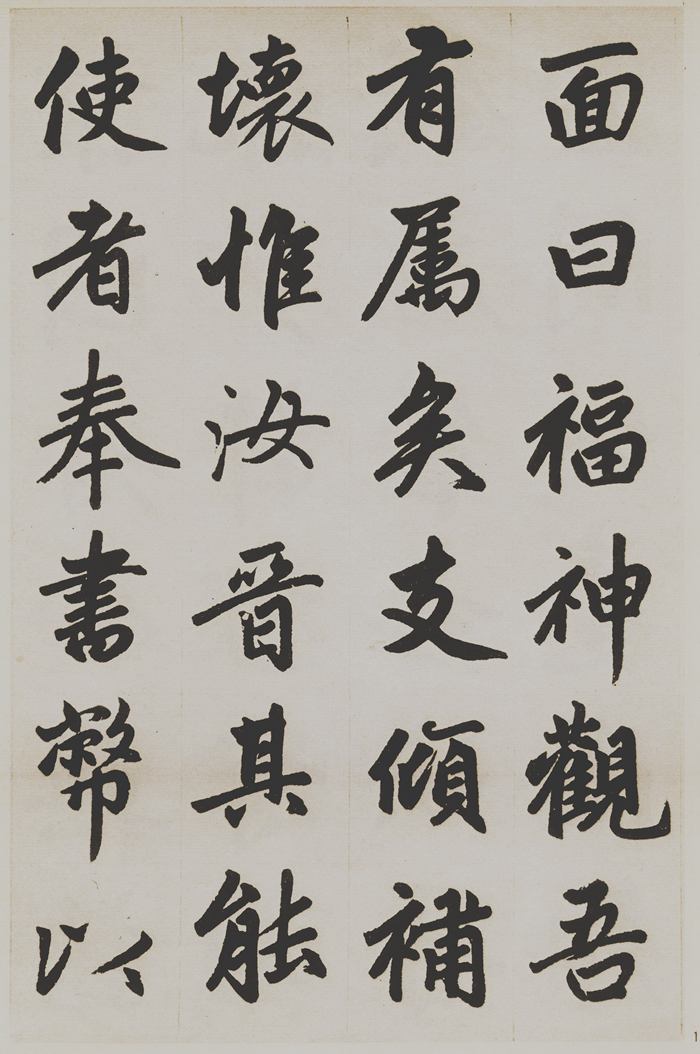 面曰福神觀吾
有属矣支傾補
壞惟汝晉其能
使者奉書幣以